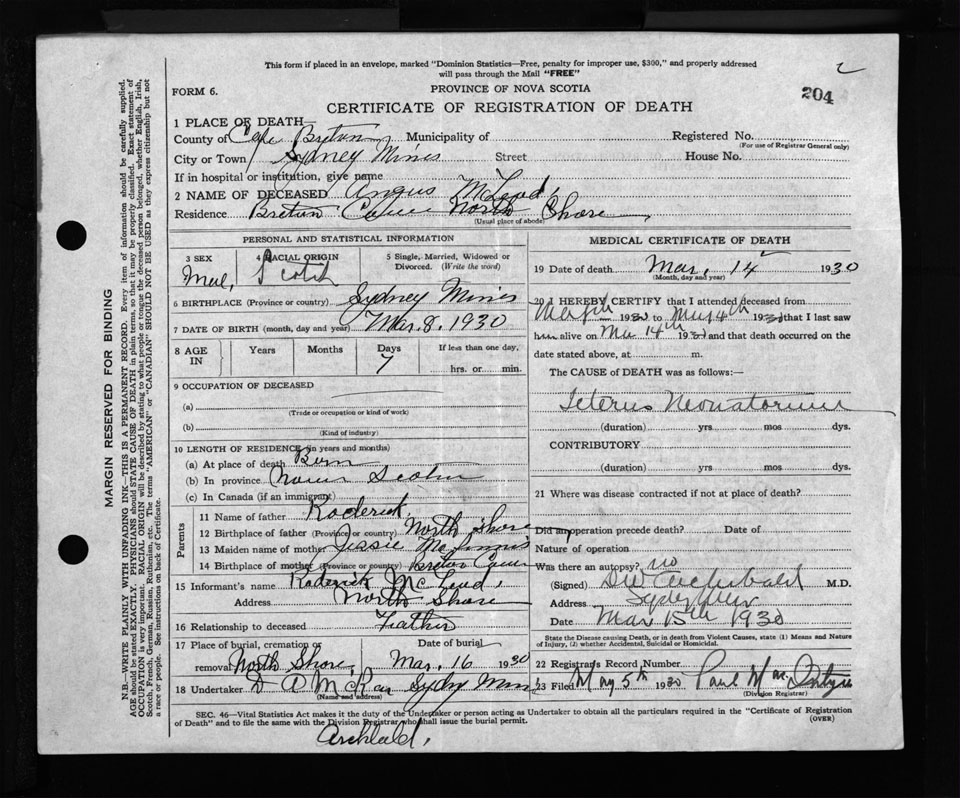 This form if placed in an envelope, marked "Dominion Statistics—Free, penalty for improper use, $300," and properly addressed
will pass through the Mail "FREE"
2
204
FORM 6.
PROVINCE OF NOVA SCOTIA
CERTIFICATE OF REGISTRATION OF DEATH
1 PLACE OF DEATH
County of Cape Breton Municipality of Registered No.
(For use of Registrar General only)
City or Town Sydney Mines Street House No.
If in hospital or institution, give name
2 NAME OF DECEASED Angus McLeod,
Residence Breton Cove North Shore,
(Usual place of abode)
PERSONAL AND STATISTICAL INFORMATION
3 SEX 4 RACIAL ORIGIN 5 Single, Married, Widowed or
Divorced. (Write the word)
Mal, Scotch
6 BIRTHPLACE (Province or country) Sydney Mines
7 DATE OF BIRTH (month, day and year) Mar. 8, 1930
8 AGE IN Years Months Days If less than one day,
7 hrs. or min.
9 OCCUPATION OF DECEASED
(a)
(Trade or occupation or kind of work)
(b)
(Kind of industry)
10 LENGTH OF RESIDENCE (in years and months)
(a) At place of death Born
(b) In province Nova Scotia
(c) In Canada (if an immigrant)
Parents
11 Name of father Roderick,
12 Birthplace of father (Province or country) North Shore
13 Maiden name of mother Jessie McInnis
14 Birthplace of mother (Province or country) Breton Cove
15 Informant's name Roderick McLeod,
Address North Shore
16 Relationship to deceased Father
17 Place of burial, cremation or Date of burial
removal North Shore, Mar. 16 1930
18 Undertaker D A McRae Sydny Mines
(Name and address)
MEDICAL CERTIFICATE OF DEATH
19 Date of death Mar, 14 1930
(Month, day and year)
20 I HEREBY CERTIFY that I attended deceased from
1930 to 1930 that I last saw
him alive on Mar 14th 1930 and that death occurred on the
date stated above, at m.
The CAUSE of DEATH was as follows:—
Icterus Neonatorum
(duration) yrs mos dys.
CONTRIBUTORY
(duration) yrs mos dys.
21 Where was disease contracted if not at place of death?
Did an operation precede death? Date of
Nature of operation
Was there an autopsy? no
(Signed) Archibald M.D.
Address
Date Mar 15th 1930
State the Disease causing Death, or in death from Violent Causes, state (1) Means and Nature
of Injury, (2) whether Accidental, Suicidal or Homicidal.
22 Registrar's Record Number
23 Filed May 5th 1930 Paul MacIntyre
(Division Registrar)
SEC. 46—Vital Statistics Act makes it the duty of the Undertaker or person acting as Undertaker to obtain all the particulars required in the "Certificate of Registration
of Death" and to file the same with the Division Registrar who shall issue the burial permit.
(OVER)
Archbald,
MARGIN RESERVED FOR BINDING
N.B.—WRITE PLAINLY WITH UNFADING INK—THIS IS A PERMANENT RECORD. Every item of information should be carefully supplied.
AGE should be stated EXACTLY. PHYSICIANS should STATE CAUSE OF DEATH in plain terms, so that it may be properly classified. Exact statement of
OCCUPATION is very important. RACIAL ORIGIN will be described by stating to what people or tongue the deceased person belonged, whether English, Irish,
Scotch, French, German, Russian, Ruthenian, etc. The terms "AMERICAN" or "CANADIAN" SHOULD NOT BE USED as they express citizenship but not
a race or people. See instructions on back of Certificate.